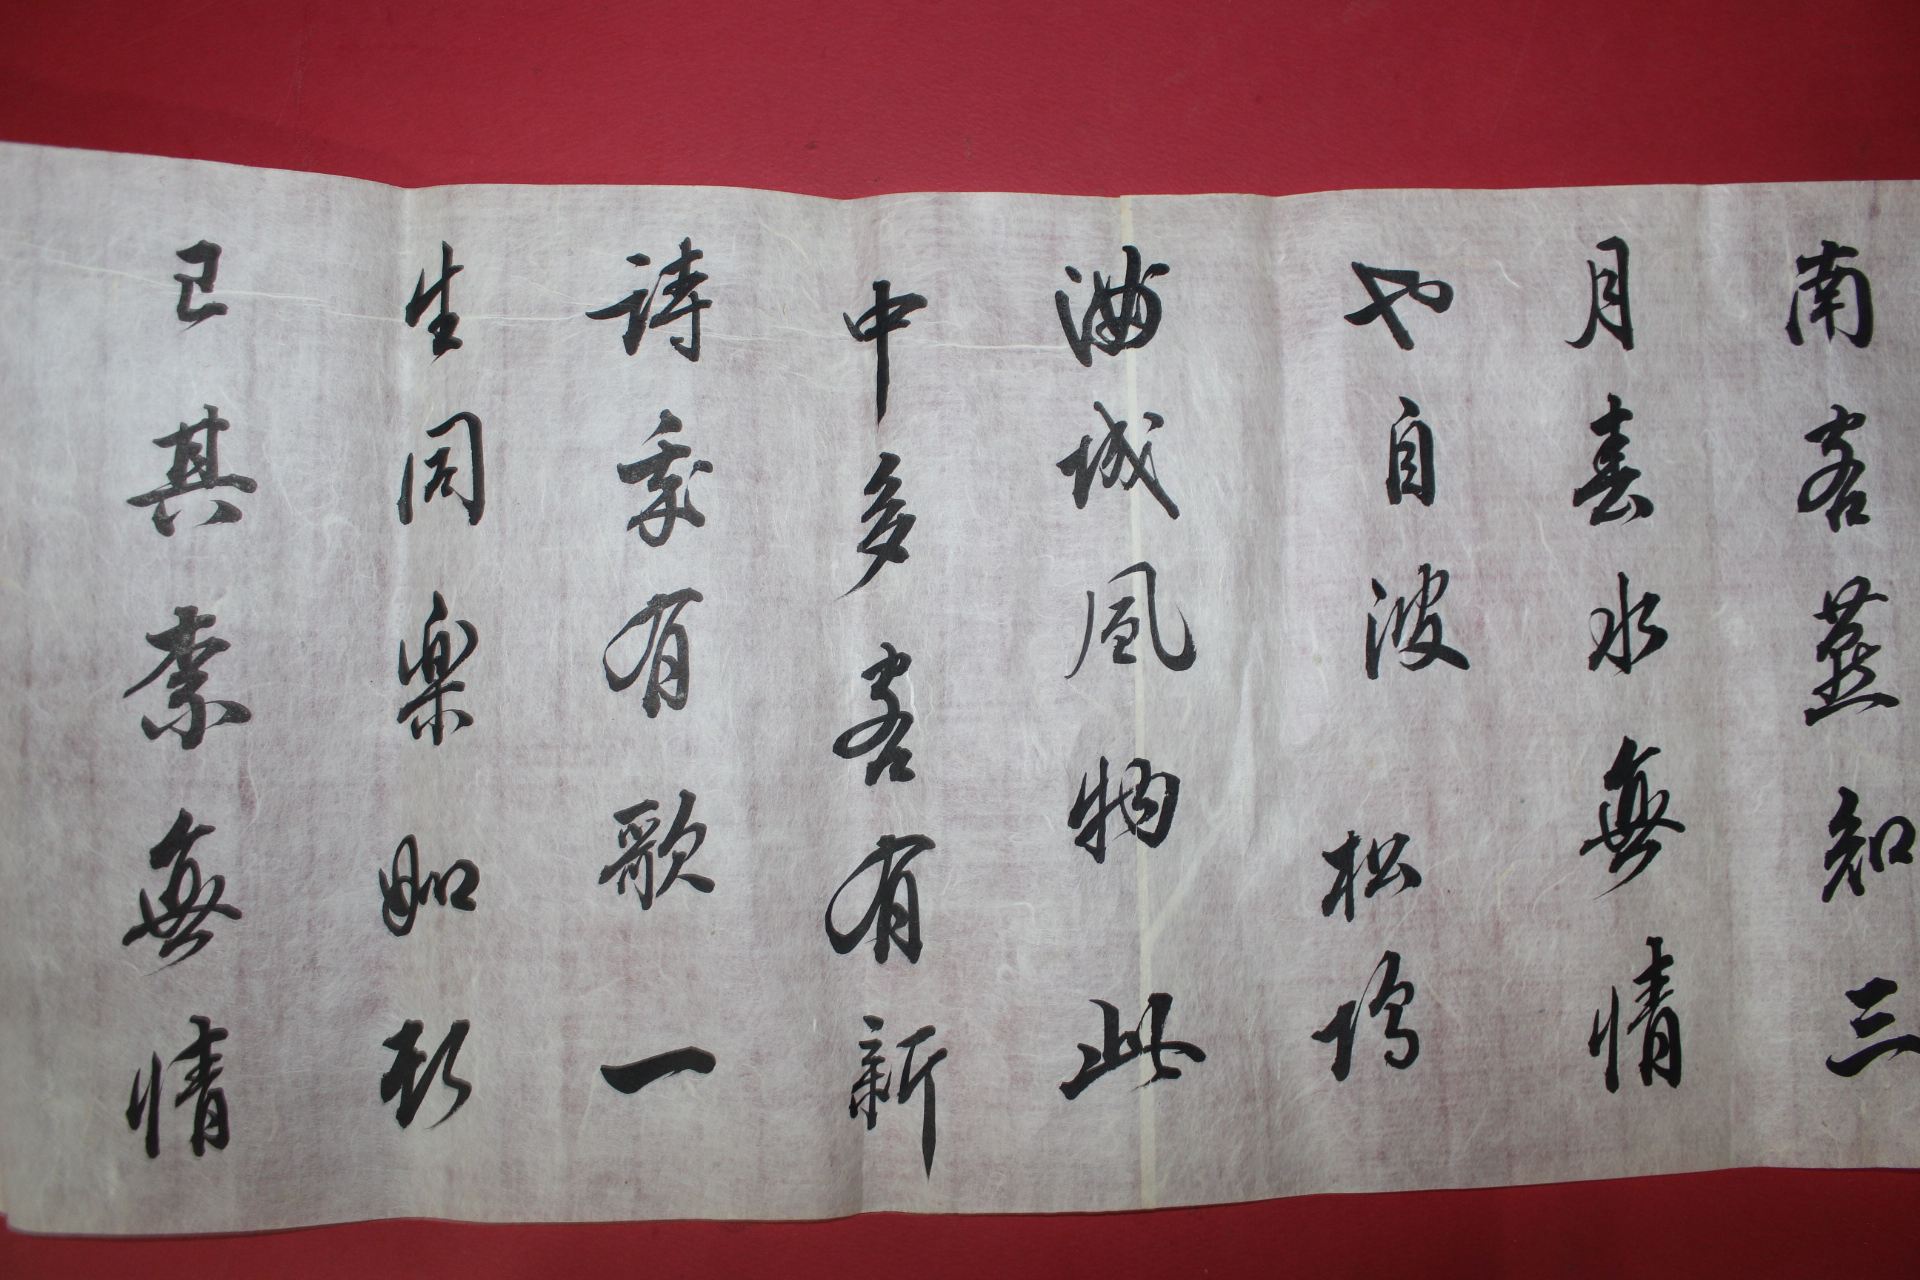 南客燕知三
月春水無情
也自波松塢
滿城風物此
中多客有新
詩我有歌一
生同樂如
已其素無情